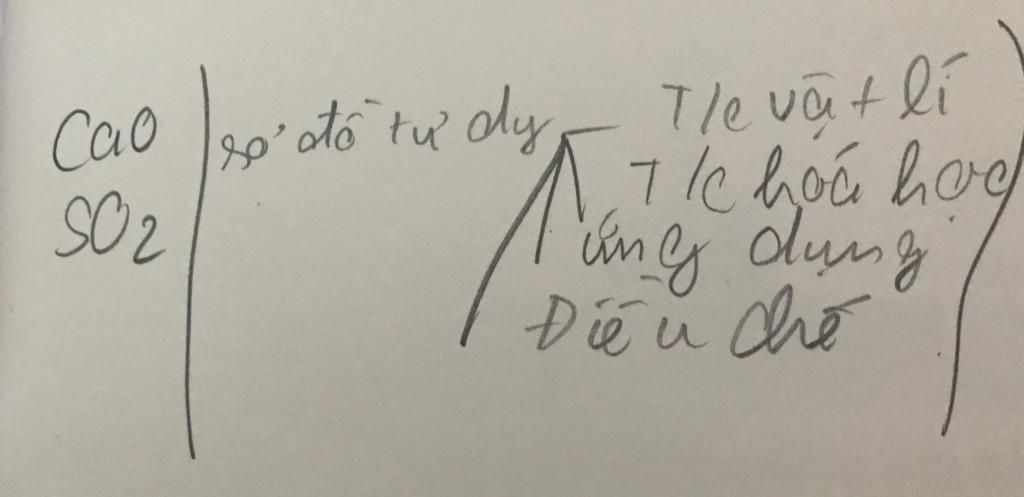 CaO
SO2
sơ đồ tư dy
T/c vật lí
T/c hoá học
ứng dụng
Điều chế